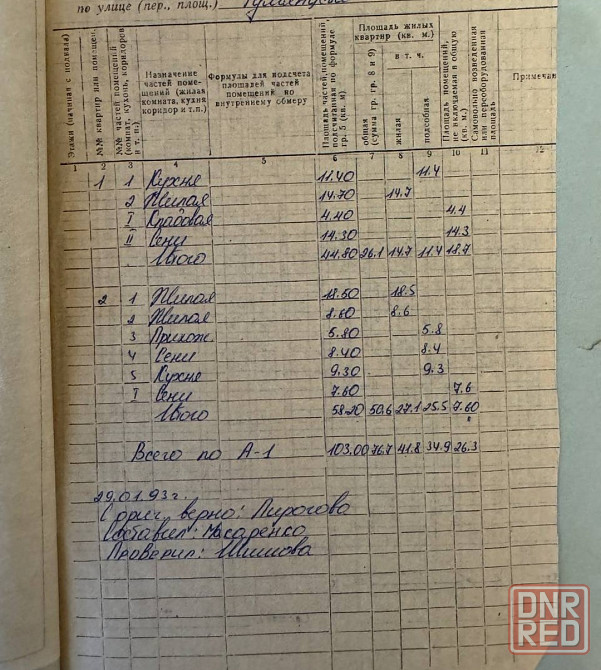 по улице (пер., площ.)
Этажи (начиная с подвала)
№№ квартир или помещен.
№№ частей помещений (комнат, кухонь, коридоров и т. п.)
Назначение частей поме- щений (жилая комната, кухня коридор и т.п.)
Формулы для подсчета площадей частей помещений по внутреннему обмеру
Площадь частей помещений подсчитанная по формуле гр. 5 (кв. м)
Площадь жилых квартир (кв. м.)
общая (сумма гр. гр. 8 и 9)
в т. ч.
жилая
подсобная
Площадь помещений, не включаемая в общую (кв. м.)
Самовольно возведенная или переоборудованная площадь
Примечан
1 2 3 4 5 6 7 8 9 10 11 12
1 1 Кухне 11.40 11.4
2 Жилая 14.70 14.7
I Кладовая 4.40 4.4
II Сени 14.30 14.3
Итого 44.80 26.1 14.7 11.4 18.7
2 1 Жилая 18.50 18.5
2 Жилая 8.60 8.6
3 Прихож. 5.80 5.8
4 Сени 8.40 8.4
5 Кухне 9.30 9.3
I Сени 7.60 7.6
Итого 58.20 50.6 27.1 25.5 7.60
Всего по А-1 103.00 76.7 41.8 34.9 26.3
29.01.93г.
С ориг. верно: Пирогова
Составил: Макаренко
Проверил:
DNR
RED